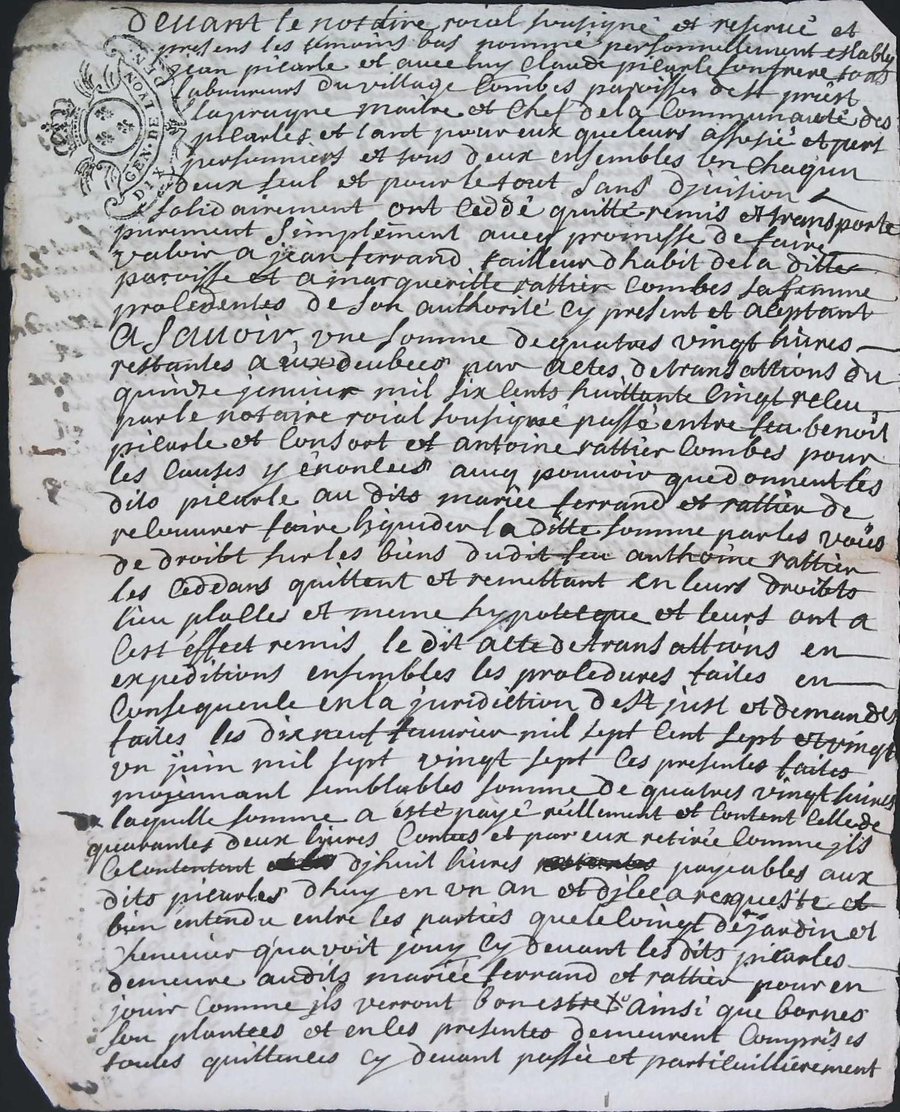 GEN. DE LYON
DIX
DEN
devant le nottaire roial sousigné et reservé et
presens les temoins bas nommé personnellement establys
jean picarle et avec luy Claude picarle son frere tous
laboureurs du village Combes paroisse de st priest
laprugne maitre et Chef de la Communauté des
picarles et tant pour eux que leurs assosié et pert
personniers et tous deux ensembles len chaqun
deux seul et pour le tout sans division
solidairement ont Ceddé quitté remis et transporte
purement semplement avecq promesse de faire
valoir a jean ferrand tailleur dhabit de la ditte
paroisse et a marguerite rattier Combes sa femme
procedentes de son authorité cy present et aceptant
a sauoir, une somme de quatres vingt livres
restantes a eux deubees par actes de transattions du
quinze janvier mil six cents huittante Cinq receu
par le notaire roial sousigné passé entre feu benoit
picarle et Consort et antoine rattier Combes pour
les Causes y énoncees avecq pouvoir que donnent les
dits picarle au dits mariée ferrand et rattier de
recouurer faire liquider la ditte somme par les voïes
de droibt sur les biens dudit feu anthoine rattier
les Ceddans quittent et remettant en leurs droibts
lieu plasses et meme hypoteque et leurs ont a
Cest éffect remis le dit atte de transattions en
expeditions ensembles les procedures faites en
Consequence en la juridiction de st just et demandes
faites les dix neuf feuurier mil sept Cent sept et vingt
un juin mil sept vingt sept Ces presentes faites
mojennant semblables somme de quatres vingt livres
laquille somme a esté payé réllement et Content Celle de
quarantes deux livres Contés et par eux retirée Comme jls
Ce contentent djhuit livres payeables aux
dits picarles dhuy en un an et djlec a requeste et
bien entendu entre les parties que le Coingt de jardin et
Chenevier qu'avoit jouy Cy devant les dits picarles
demeure audits mariée ferrand et rattier pour en
jouir Comme jls verront bon estre ainsi que bornes
son plantees et en les presentes demeurent Comprises
toutes quittences Cy devant passée et particuillierement